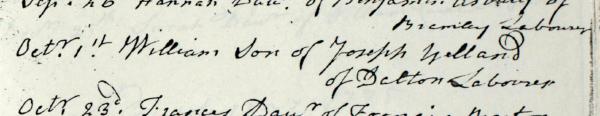 Sep. 26 Hannah Daur. of Benjamin of
Bramley Labourer
Octr. 1st. William Son of Joseph Yelland
of Dalton Labourer
Octr. 23d. Frances Daur. of Francis